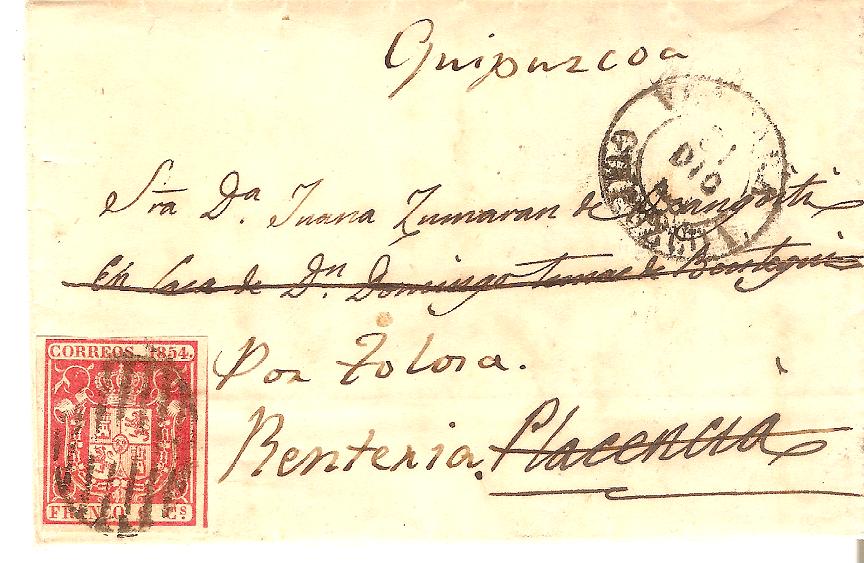 Guipuzcoa
Sra Dª Juana Zumaran de
En Casa de Dn Domingo Tomas de
Por Tolosa.
Renteria. Placencia
CORREOS. 1854.
FRANCO 6 Cs
DIC